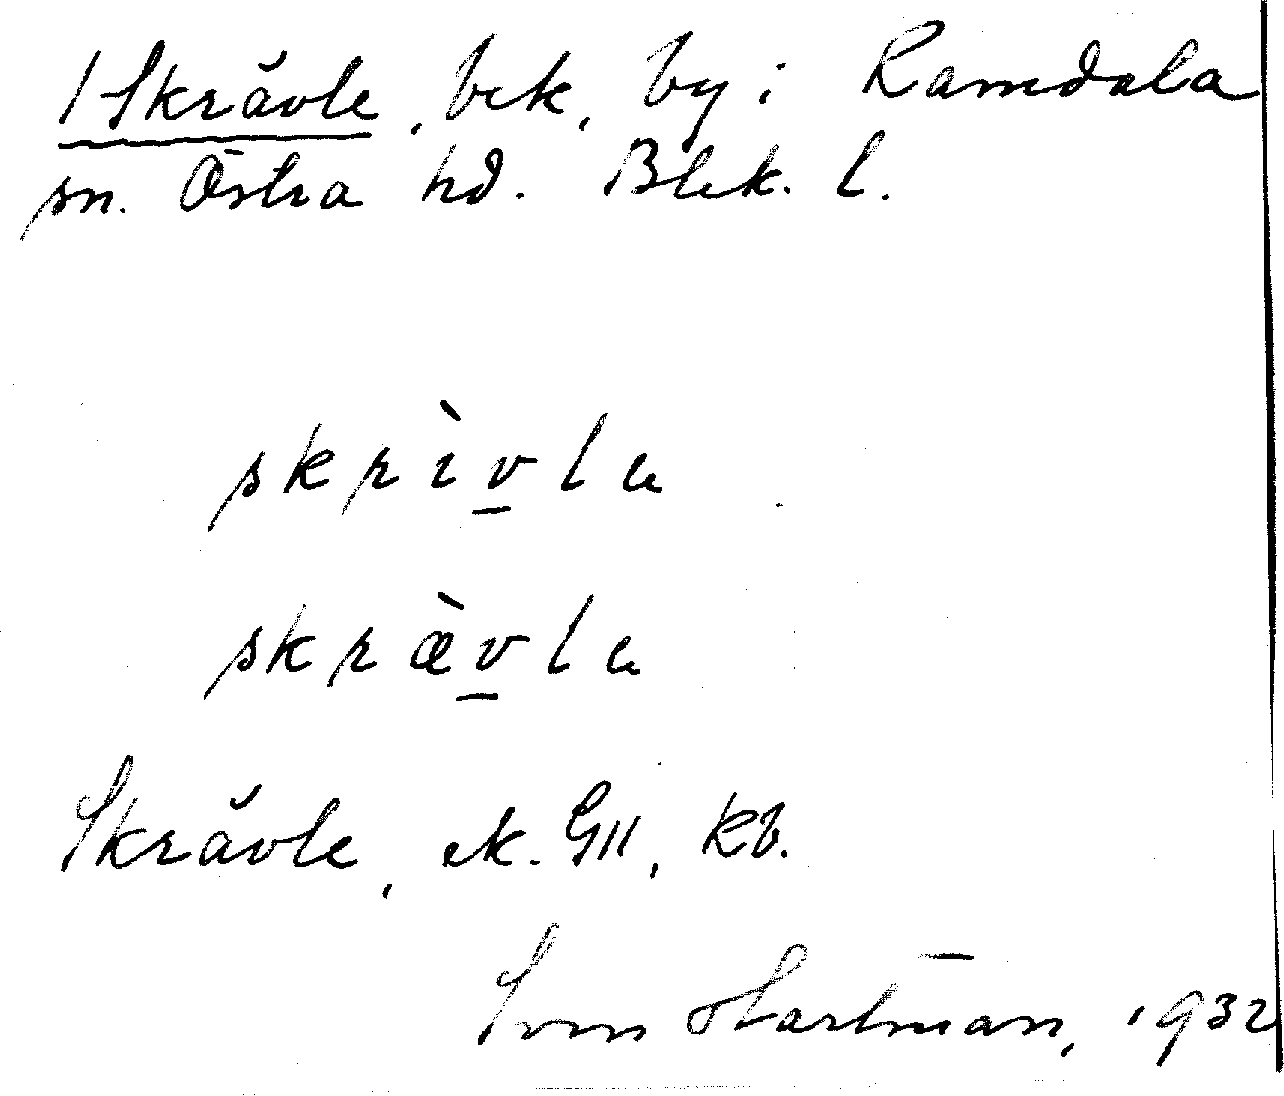 1 Skrävle, bek, by i Ramdala
sn. Östra hd. Blek. l.
skrìvla
skræ̀vla
Skrävle, ek. GII, kb.
Sven Hartman, 1932